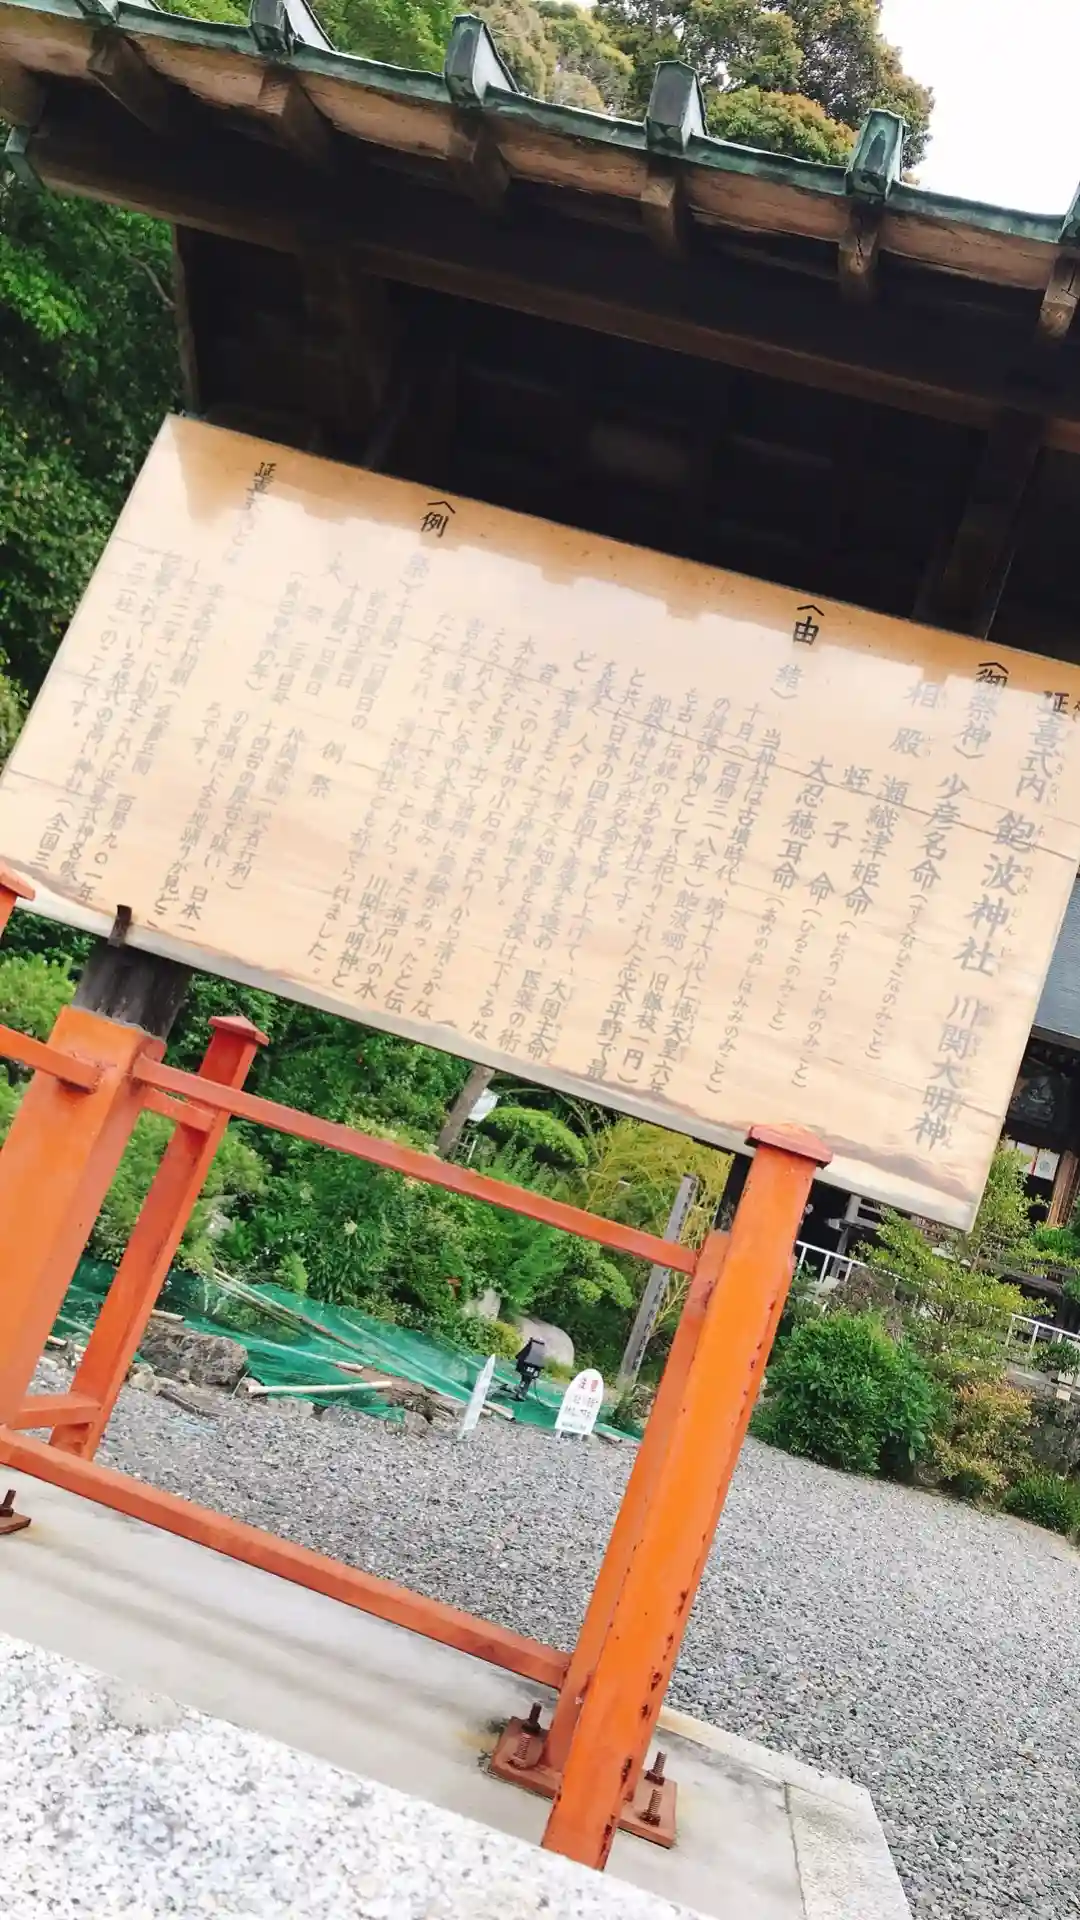 延喜式内 飽波神社 川関大明神
〈御祭神〉少彦名命(すくなひこなのみこと)
相殿 瀬織津姫命(せおりつひめのみこと)
蛭子命(ひるこのみこと)
大忍穂耳命(あめのおしほみみのみこと)
〈由緒〉当神社は古墳時代、第十六代仁徳天皇六年
十月(西暦三一八年)飽波郷(旧藤枝一円)
の鎮護の神としてお祀りされた志太平野で最
も古い伝統のある神社です。
御祭神は少彦名命と申し上げて、大国主命
と共に日本の国を開き産業を進め、医薬の術
を教え、人々に様々な知恵をお授け下さるな
ど、幸福をもたらす神様です。
昔、この山裾の小石のまわりから清らかな
水が滾々と湧き出て諸病に霊験があったと伝
えられ人々に命の水を恵み、また瀬戸川の水
害から護って下さることから、川関大明神と
たたえられ、湧波神社とも称せられました。
〈例祭〉十月第二日曜日の
前日の土曜日
十月第二日曜日 例祭
大祭 三年に一度
(寅巳申亥の年)
十四台の屋台で賑い、日本一
の長唄による地踊りが見どこ
ろです。
延喜式内とは
平安時代初期(延喜五年
記載されている格式の高い神社(全国三
のことです。